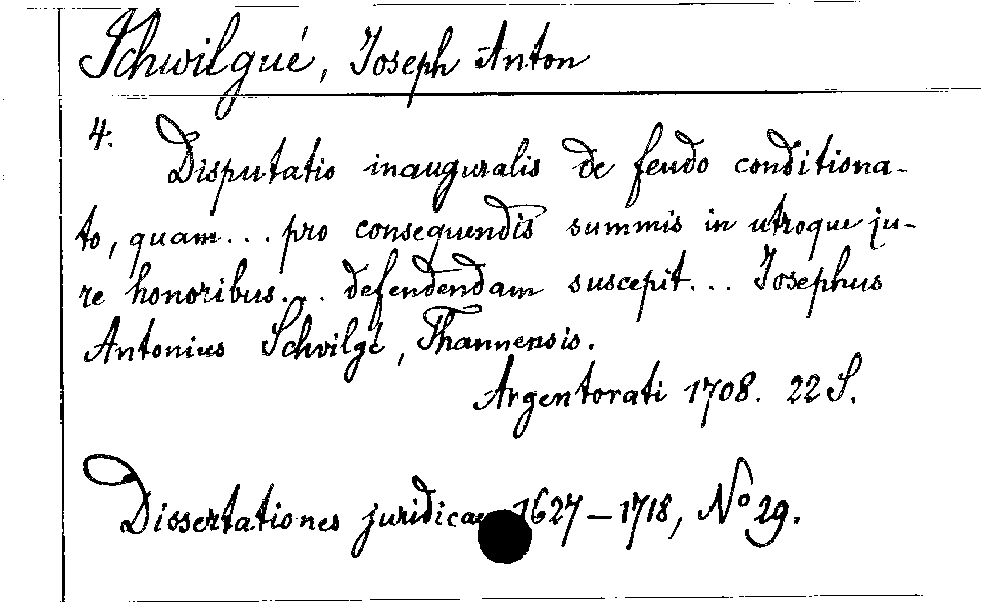 Schwilgué, Joseph Anton
4.
Disputatio inauguralis de feudo conditiona-
to, quam... pro consequendis summis in utroque ju-
re honoribus... defendendam suscepit... Josephus
Antonius Schvilgé, Thannensis.
Argentorati 1708. 22 S.
Dissertationes juridicae 1627-1718, No 29.